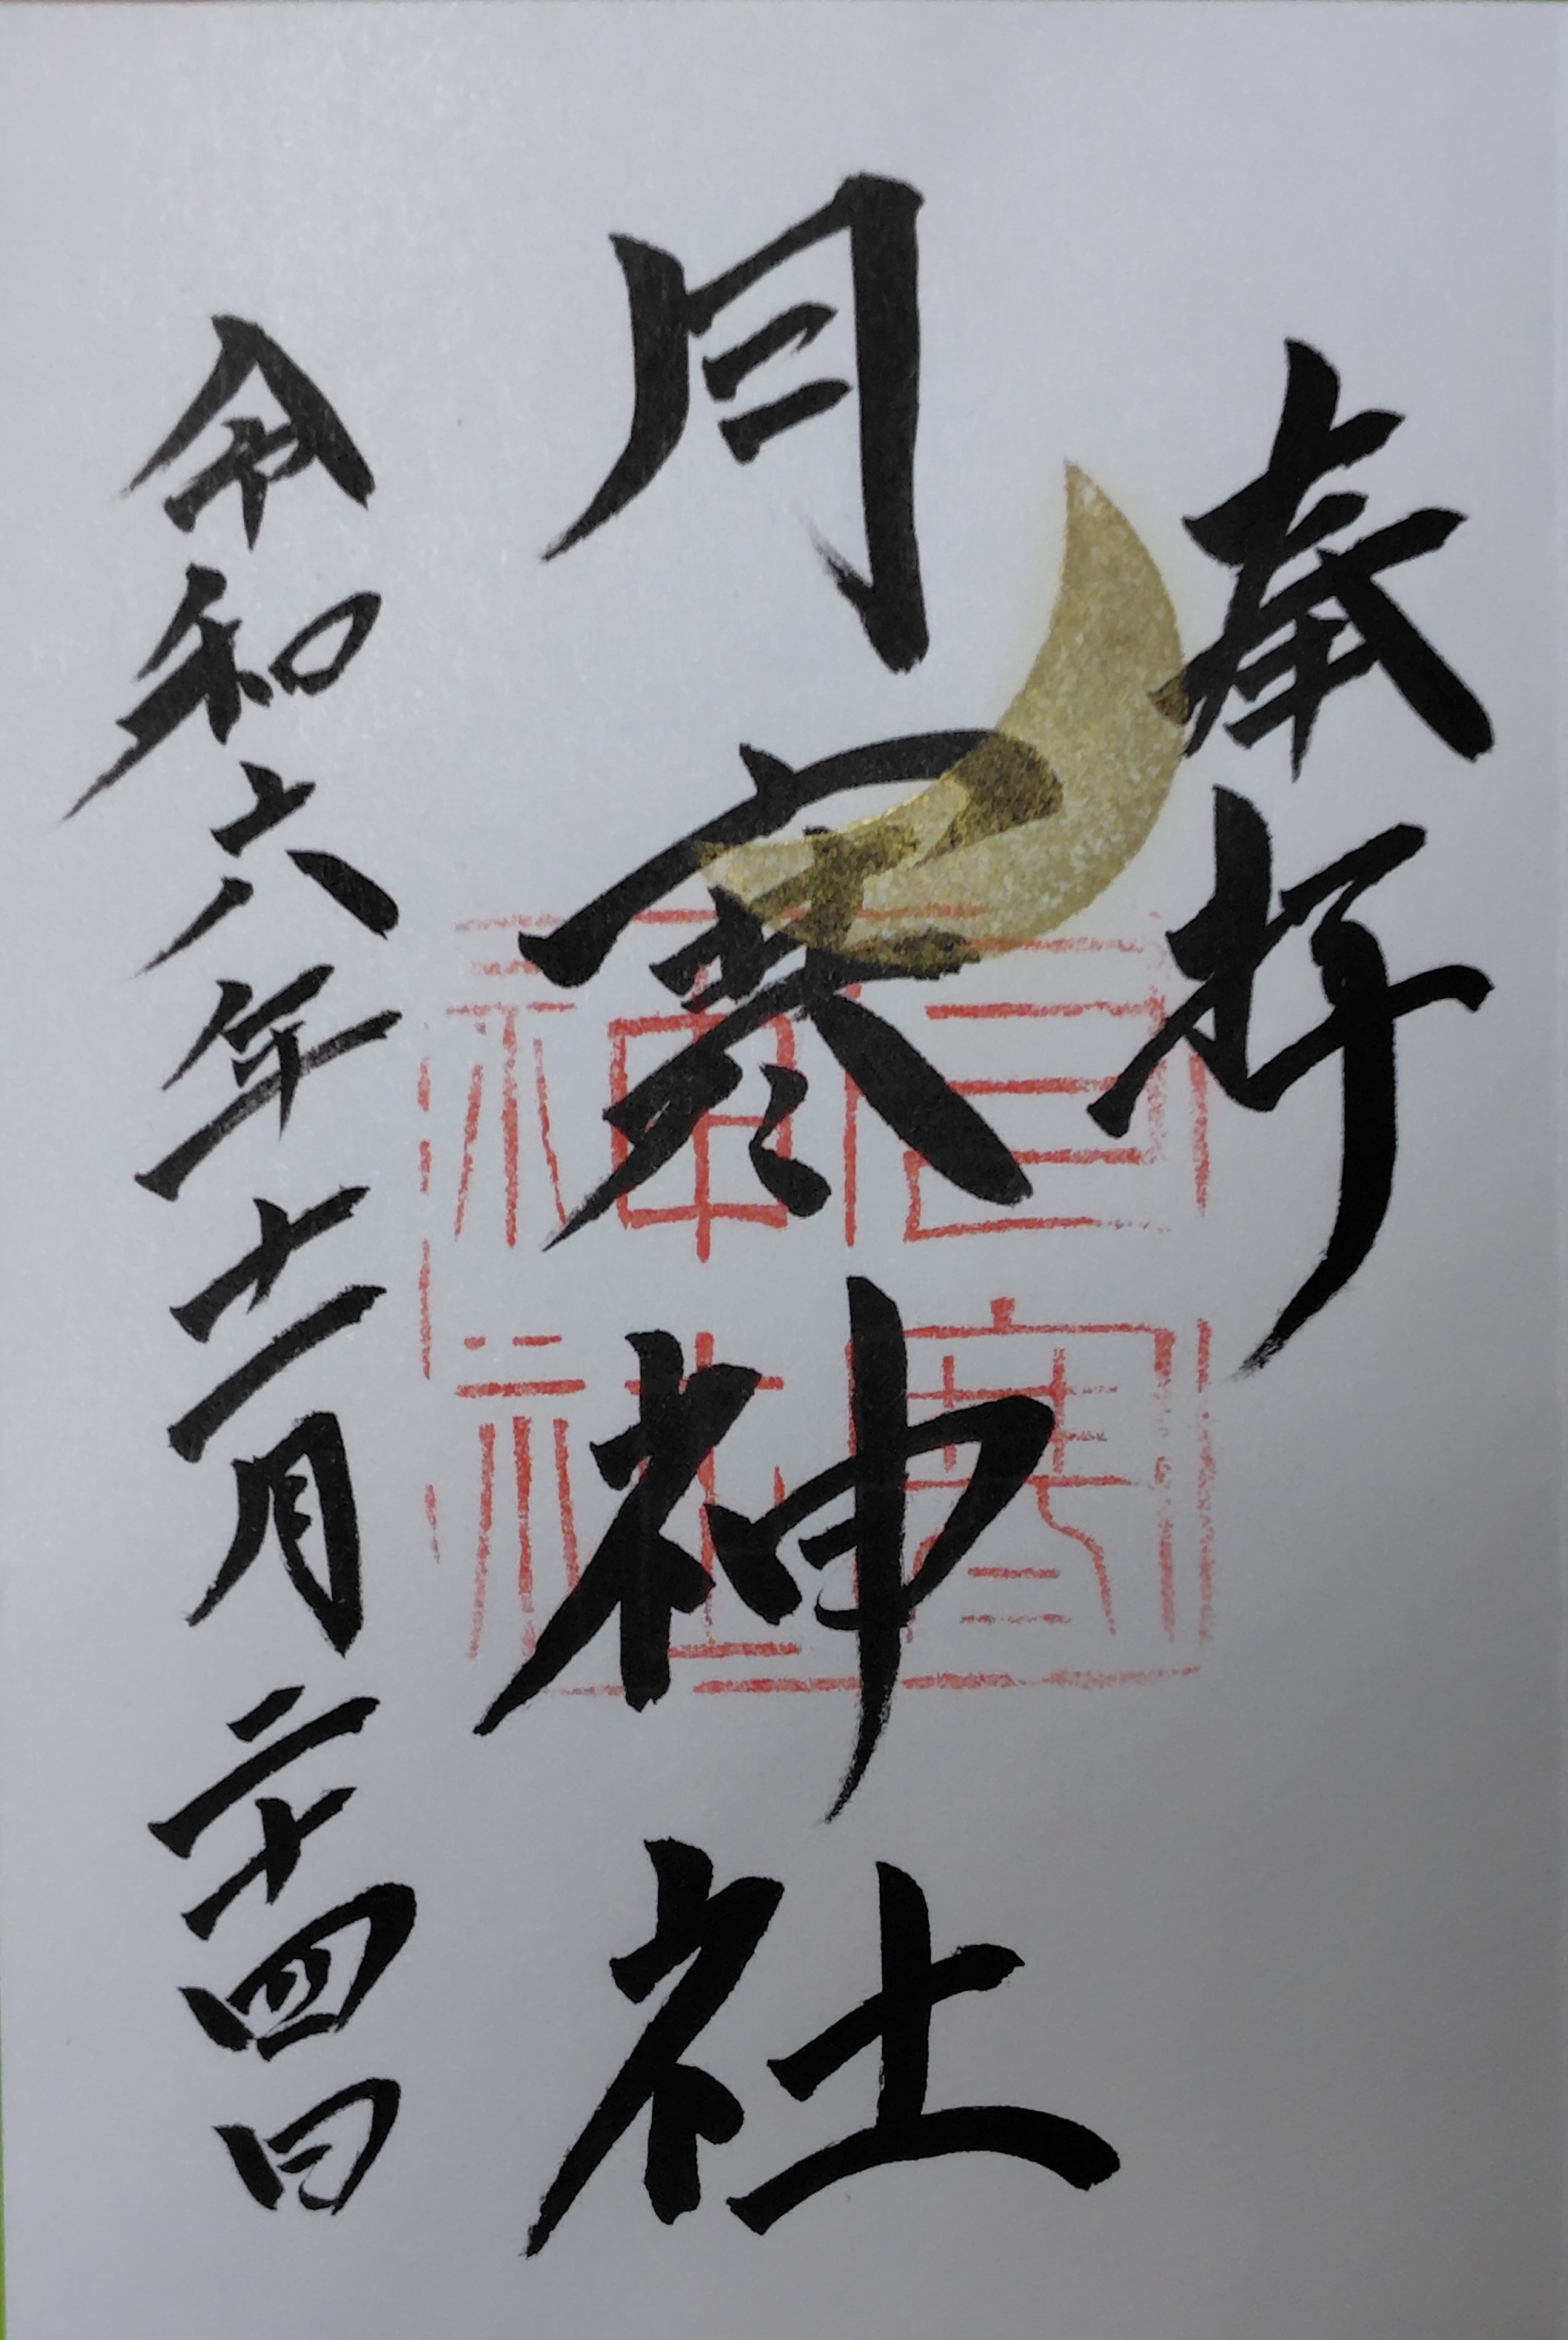 奉拝
月寒神社
令和六年十一月二十四日
月寒
神社